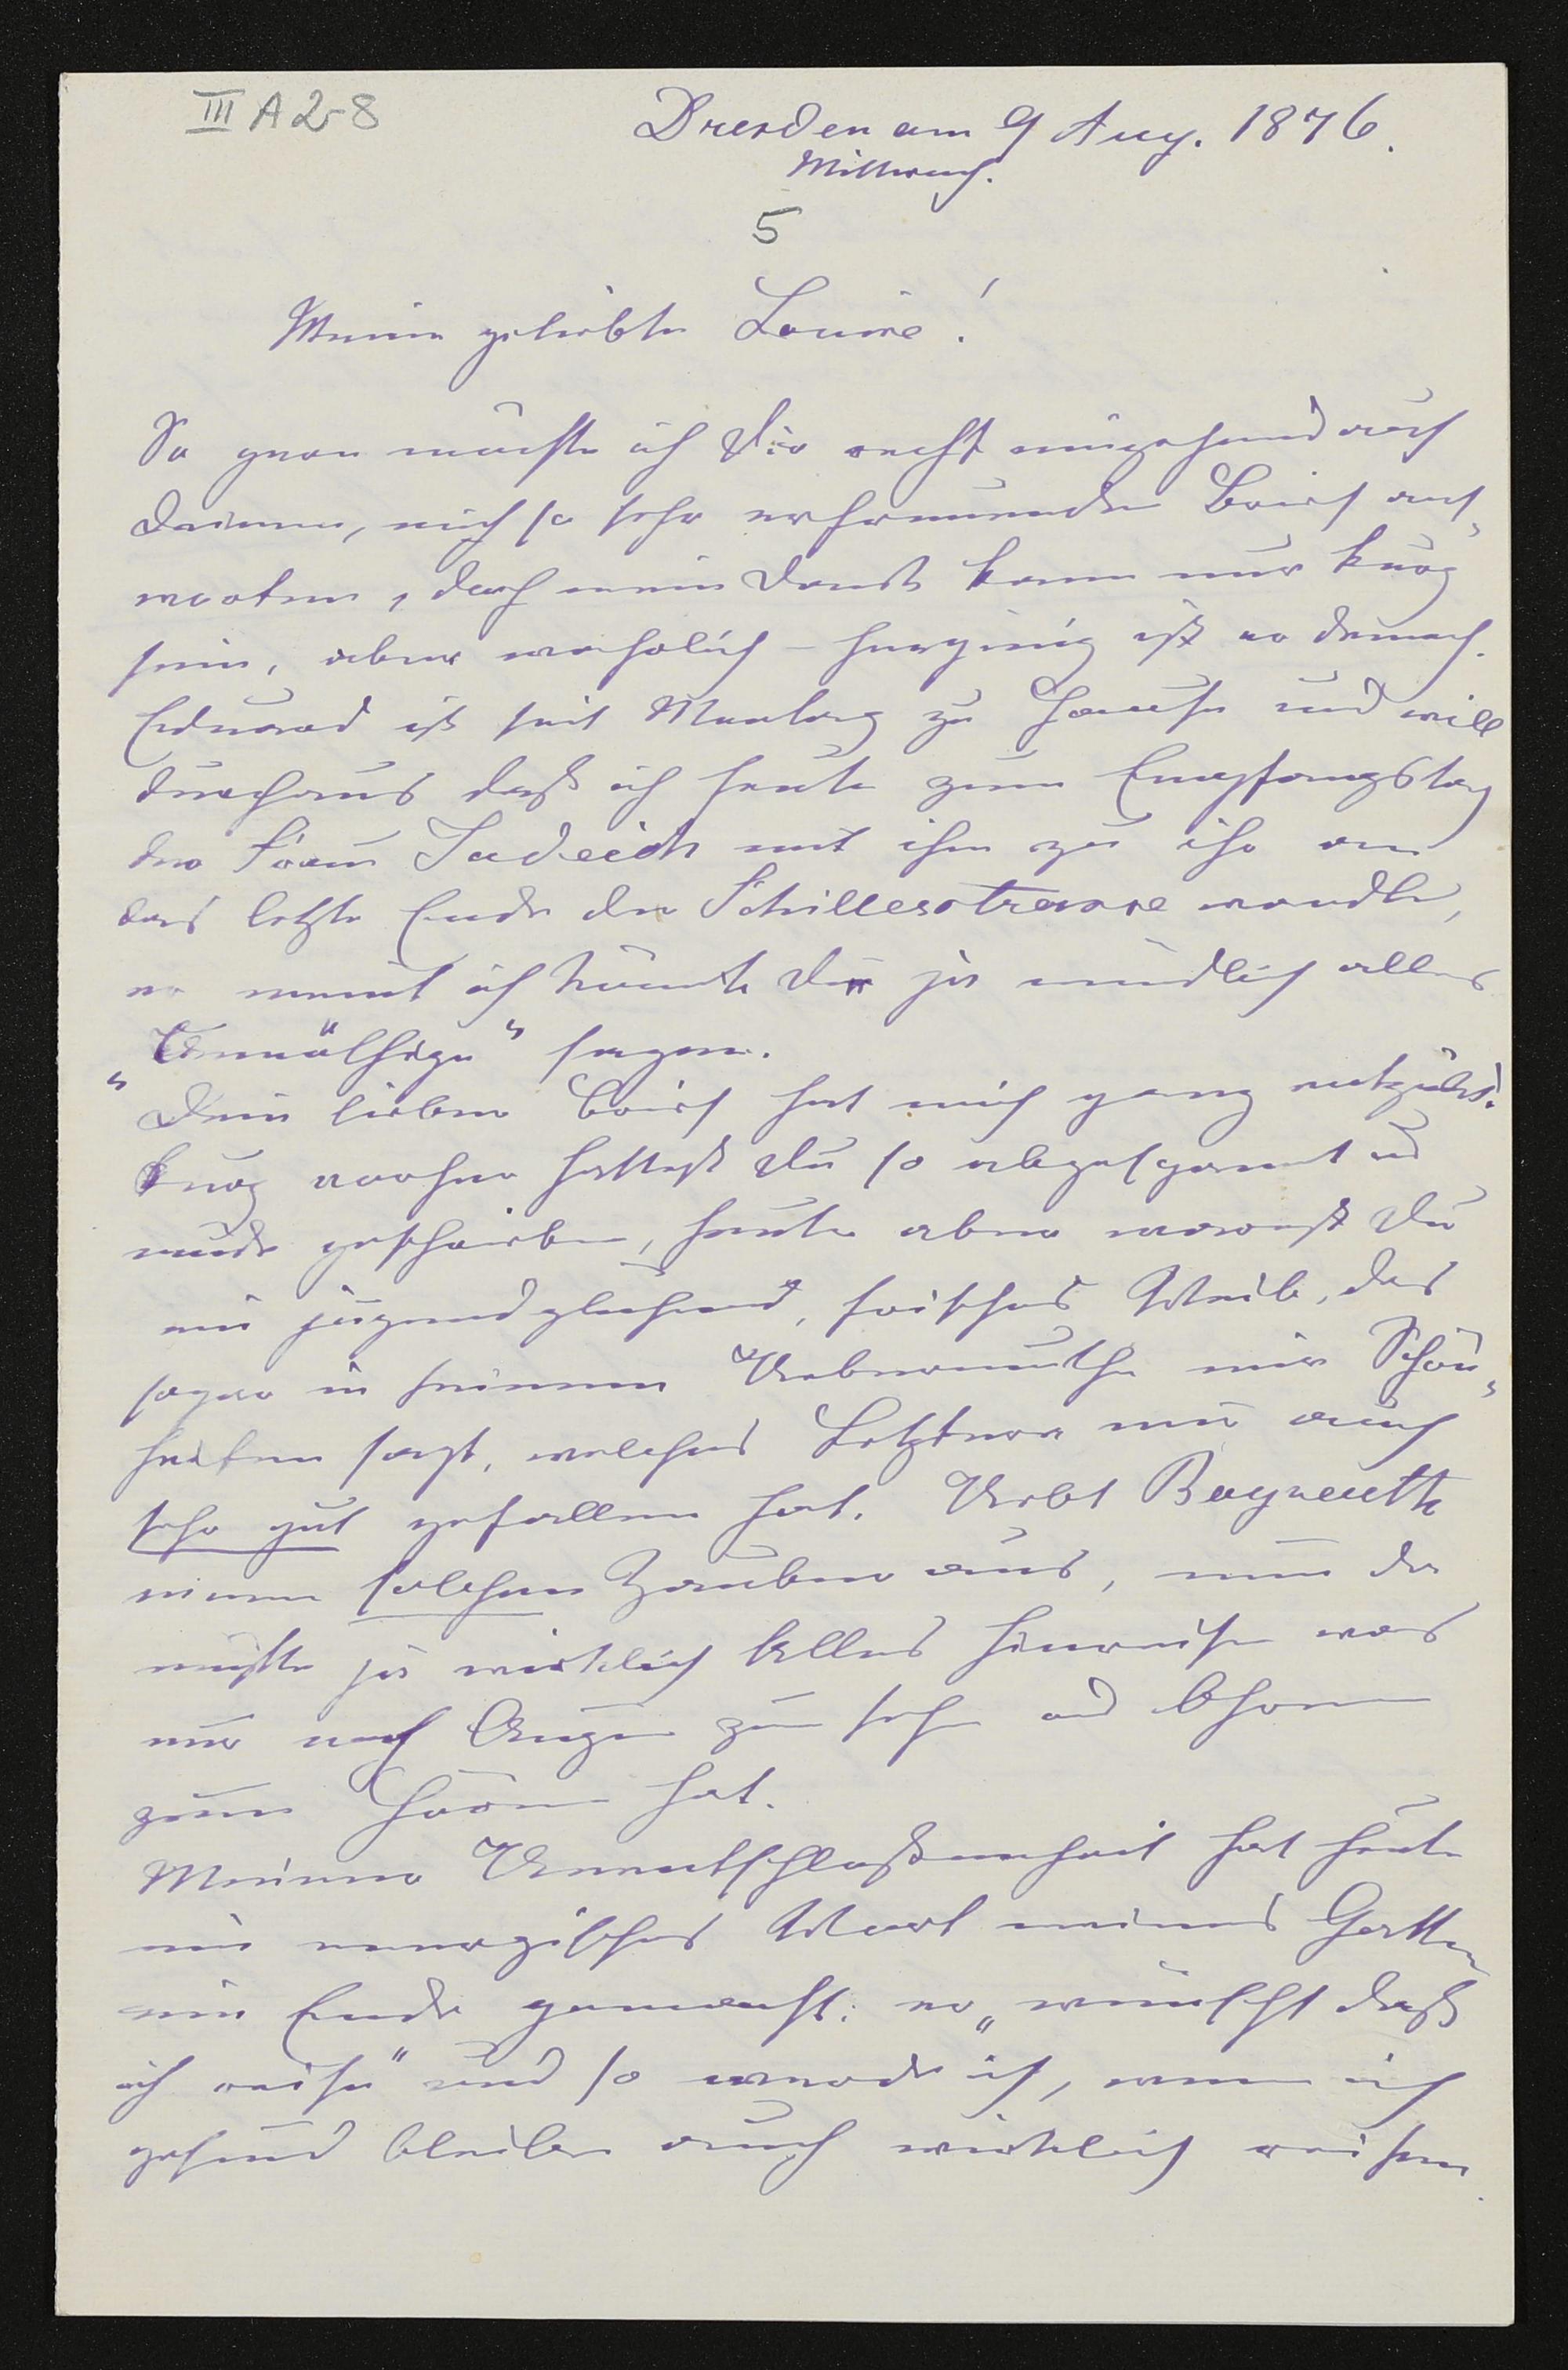 III A 2-8
Dresden am 9 Aug. 1876.
Mittwoch.
5
Meine geliebte Louise!
So gern möchte ich Dir recht eingehend auf
Deinen, mich so sehr erfreuenden Brief ant-
worten, doch mein Dank kann nur kurz
sein, aber wahrlich – herzinnig ist er dennoch.
Eduard ist seit Montag zu Hause und will
durchaus daß ich heute zum Empfangstag
der Frau mit ihm zu ihr an
das letzte Ende der Schillerstrasse wandle,
er meint ich könnte Dir ja mündlich alles
„Unnöthige“ sagen.
Dein lieber Brief hat mich ganz entzückt.
Kurz vorher hattest Du so abgespannt u
müde geschrieben, heute aber warest Du
ein jugendglühend, frisches Weib, das
sogar in seinem Uebermuthe mir Schön-
heiten sagt, welches Letztere mir auch
sehr gut gefallen hat. Uebt Bayreuth
einen solchen Zauber aus, nun da
müßte ja wirklich Alles hinreisen was
nur noch Augen zum sehn und Ohren
zum hören hat.
Meiner Unentschloßenheit hat heute
ein energisches Wort meines Gatten
ein Ende gemacht: er „wünscht daß
ich reise“ und so werde ich, wenn ich
gesund bleibe auch wirklich reisen.